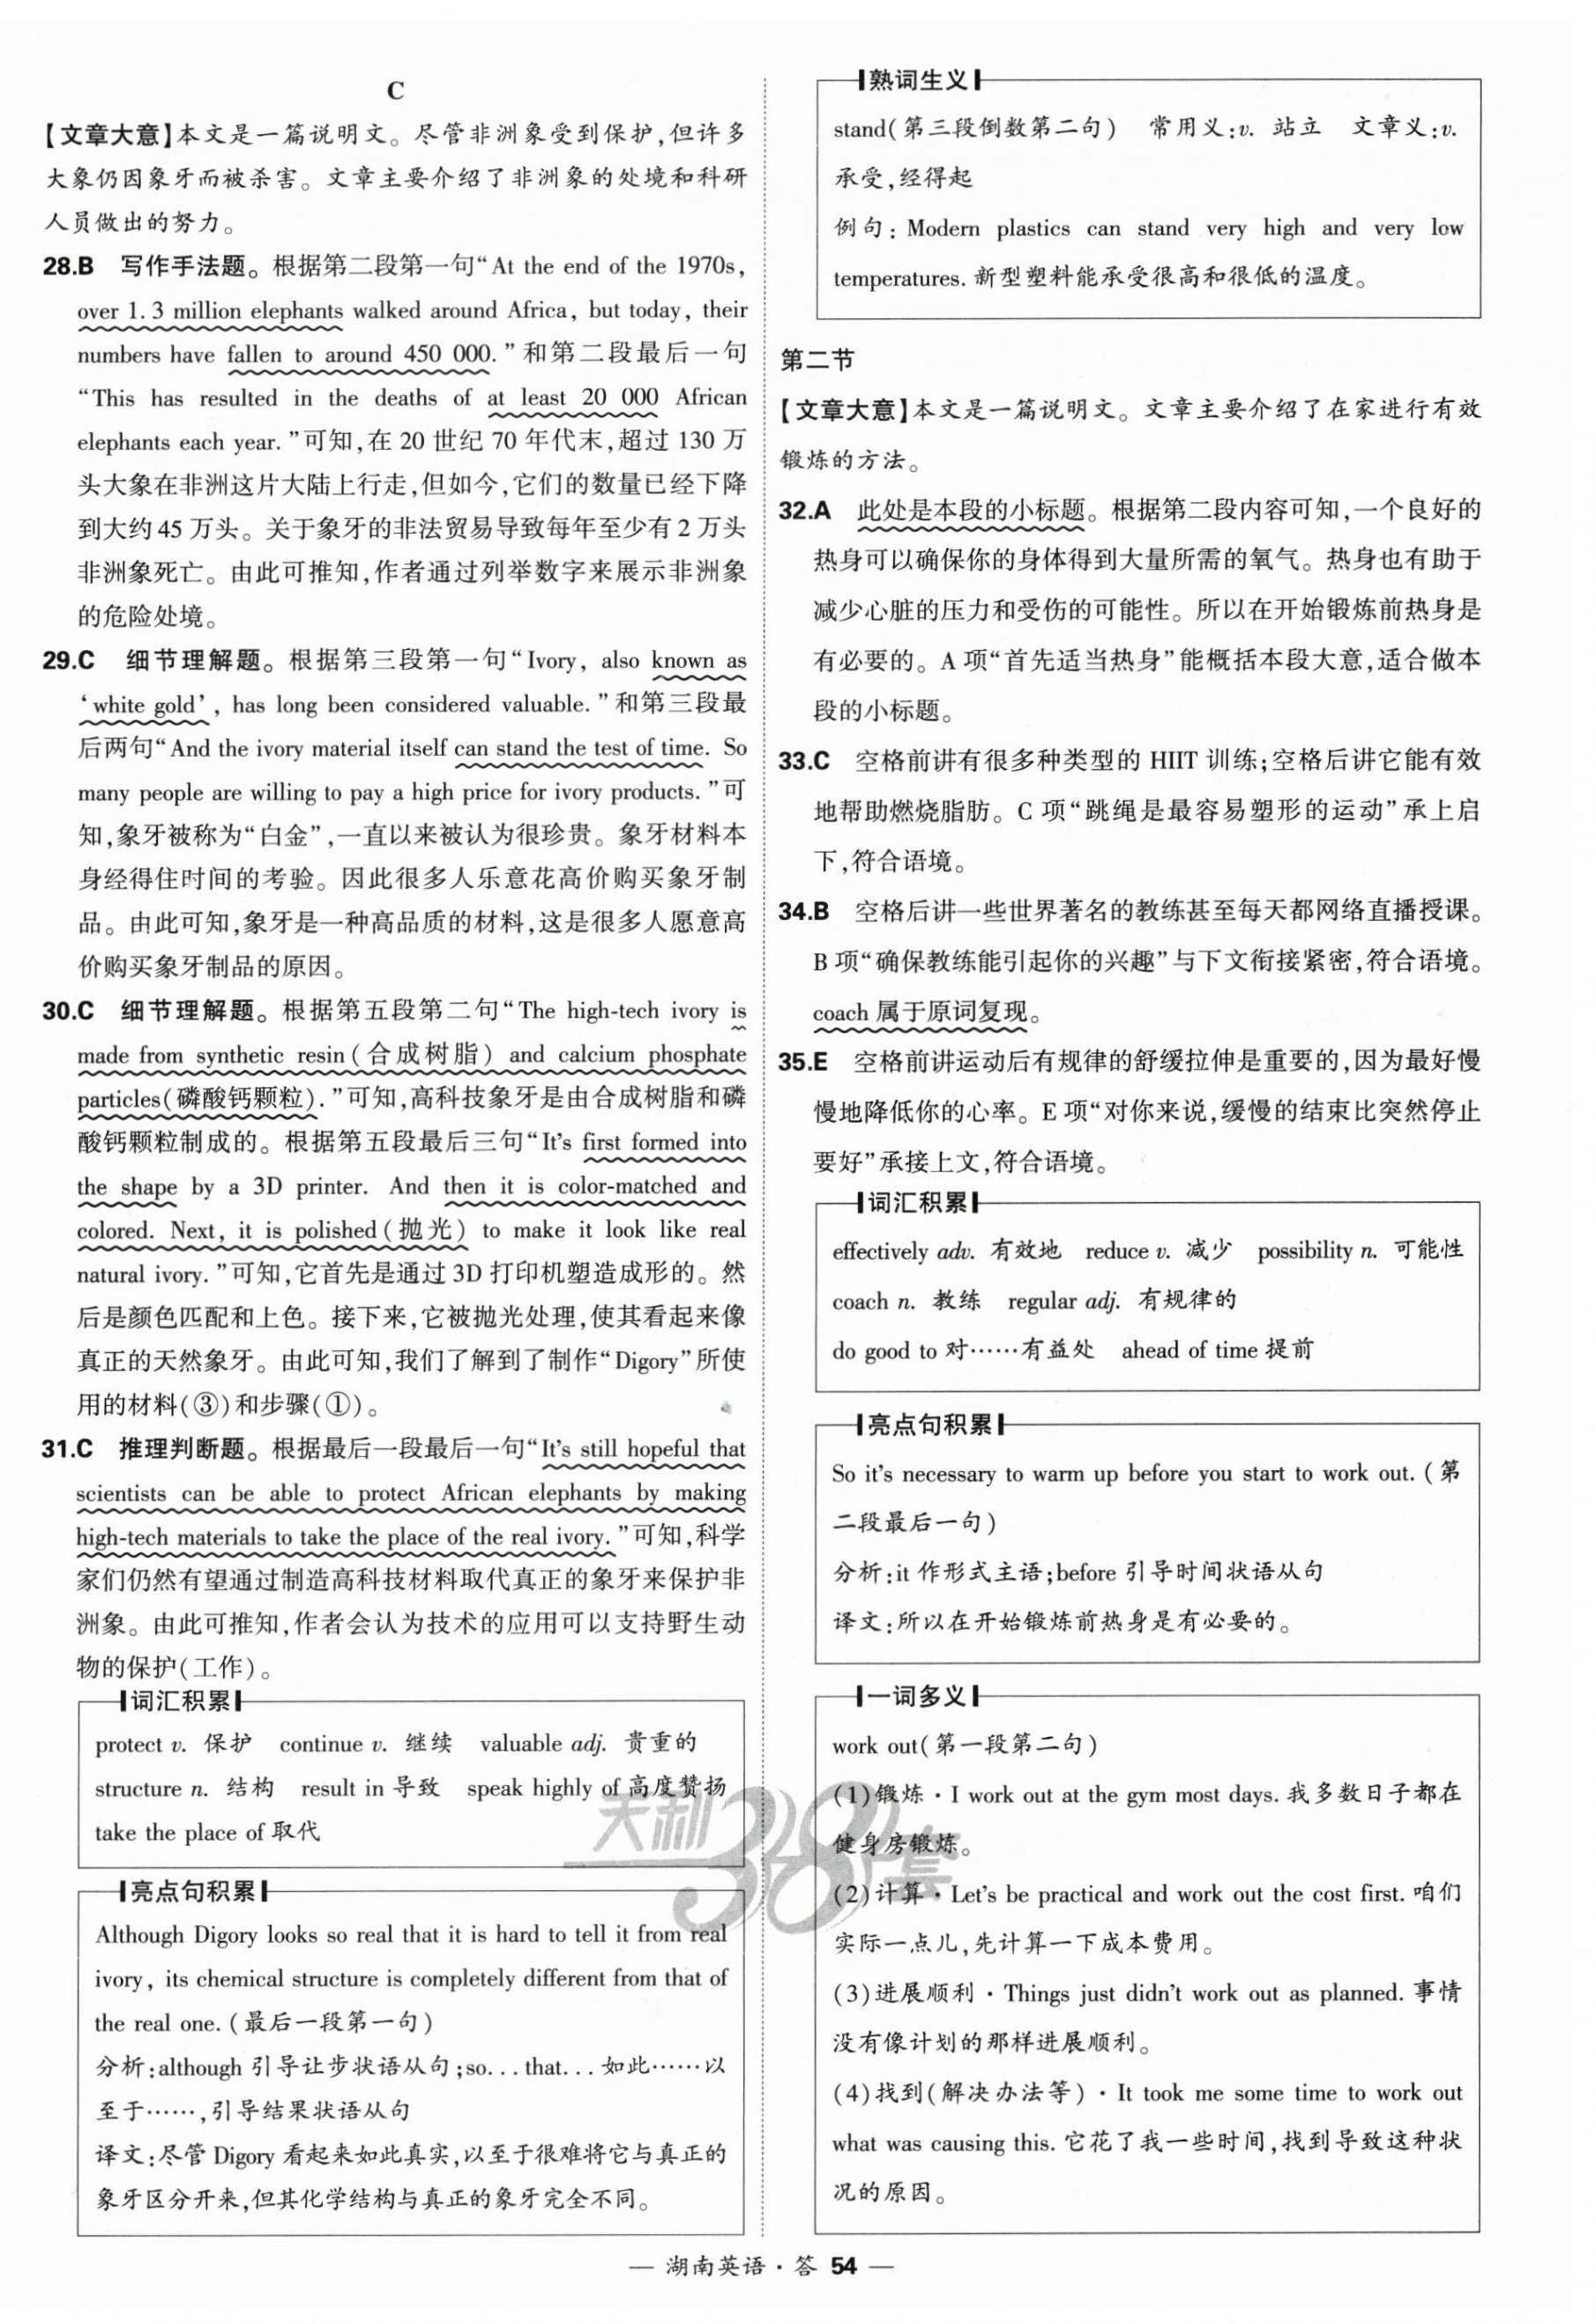 C
【文章大意】本文是一篇说明文。尽管非洲象受到保护,但许多
大象仍因象牙而被杀害。文章主要介绍了非洲象的处境和科研
人员做出的努力。
28.B 写作手法题。根据第二段第一句“At the end of the 1970s,
over 1. 3 million elephants walked around Africa, but today, their
numbers have fallen to around 450 000. ”和第二段最后一句
“This has resulted in the deaths of at least 20 000 African
elephants each year. ”可知,在 20 世纪 70 年代末,超过 130 万
头大象在非洲这片大陆上行走,但如今,它们的数量已经下降
到大约 45 万头。关于象牙的非法贸易导致每年至少有 2 万头
非洲象死亡。由此可推知,作者通过列举数字来展示非洲象
的危险处境。
29.C 细节理解题。根据第三段第一句“Ivory, also known as
‘white gold’, has long been considered valuable. ”和第三段最
后两句“And the ivory material itself can stand the test of time. So
many people are willing to pay a high price for ivory products. ”可
知,象牙被称为“白金”,一直以来被认为很珍贵。象牙材料本
身经得住时间的考验。因此很多人乐意花高价购买象牙制
品。由此可知,象牙是一种高品质的材料,这是很多人愿意高
价购买象牙制品的原因。
30.C 细节理解题。根据第五段第二句“The high-tech ivory is
made from synthetic resin(合成树脂) and calcium phosphate
particles(磷酸钙颗粒). ”可知,高科技象牙是由合成树脂和磷
酸钙颗粒制成的。根据第五段最后三句“It's first formed into
the shape by a 3D printer. And then it is color-matched and
colored. Next, it is polished(抛光) to make it look like real
natural ivory. ”可知,它首先是通过 3D 打印机塑造成形的。然
后是颜色匹配和上色。接下来,它被抛光处理,使其看起来像
真正的天然象牙。由此可知,我们了解到了制作“Digory”所使
用的材料(③)和步骤(①)。
31.C 推理判断题。根据最后一段最后一句“It's still hopeful that
scientists can be able to protect African elephants by making
high-tech materials to take the place of the real ivory. ”可知,科学
家们仍然有望通过制造高科技材料取代真正的象牙来保护非
洲象。由此可推知,作者会认为技术的应用可以支持野生动
物的保护(工作)。
词汇积累
protect v. 保护 continue v. 继续 valuable adj. 贵重的
structure n. 结构 result in 导致 speak highly of 高度赞扬
take the place of 取代
亮点句积累
Although Digory looks so real that it is hard to tell it from real
ivory, its chemical structure is completely different from that of
the real one. (最后一段第一句)
分析:although 引导让步状语从句;so. . . that. . . 如此……以
至于……,引导结果状语从句
译文:尽管 Digory 看起来如此真实,以至于很难将它与真正的
象牙区分开来,但其化学结构与真正的象牙完全不同。
熟词生义
stand(第三段倒数第二句) 常用义:v. 站立 文章义:v.
承受,经得起
例句: Modern plastics can stand very high and very low
temperatures. 新型塑料能承受很高和很低的温度。
第二节
【文章大意】本文是一篇说明文。文章主要介绍了在家进行有效
锻炼的方法。
32.A 此处是本段的小标题。根据第二段内容可知,一个良好的
热身可以确保你的身体得到大量所需的氧气。热身也有助于
减少心脏的压力和受伤的可能性。所以在开始锻炼前热身是
有必要的。A 项“首先适当热身”能概括本段大意,适合做本
段的小标题。
33.C 空格前讲有很多种类型的 HIIT 训练;空格后讲它能有效
地帮助燃烧脂肪。C 项“跳绳是最容易塑形的运动”承上启
下,符合语境。
34.B 空格后讲一些世界著名的教练甚至每天都网络直播授课。
B 项“确保教练能引起你的兴趣”与下文衔接紧密,符合语境。
coach 属于原词复现。
35.E 空格前讲运动后有规律的舒缓拉伸是重要的,因为最好慢
慢地降低你的心率。E 项“对你来说,缓慢的结束比突然停止
要好”承接上文,符合语境。
词汇积累
effectively adv. 有效地 reduce v. 减少 possibility n. 可能性
coach n. 教练 regular adj. 有规律的
do good to 对……有益处 ahead of time 提前
亮点句积累
So it's necessary to warm up before you start to work out. (第
二段最后一句)
分析:it 作形式主语;before 引导时间状语从句
译文:所以在开始锻炼前热身是有必要的。
一词多义
work out(第一段第二句)
(1)锻炼·I work out at the gym most days. 我多数日子都在
健身房锻炼。
(2)计算·Let's be practical and work out the cost first. 咱们
实际一点儿,先计算一下成本费用。
(3)进展顺利·Things just didn't work out as planned. 事情
没有像计划的那样进展顺利。
(4)找到(解决办法等)·It took me some time to work out
what was causing this. 它花了我一些时间,找到导致这种状
况的原因。
天利38套
— 湖南英语·答 54 —